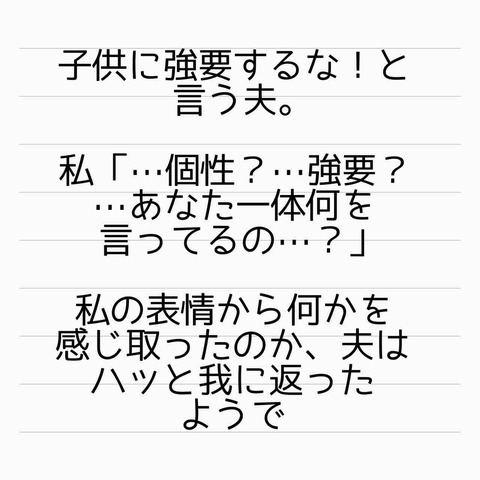 子供に強要するな！と
言う夫。
私「…個性？…強要？
…あなた一体何を
言ってるの…？」
私の表情から何かを
感じ取ったのか、夫は
ハッと我に返った
ようで